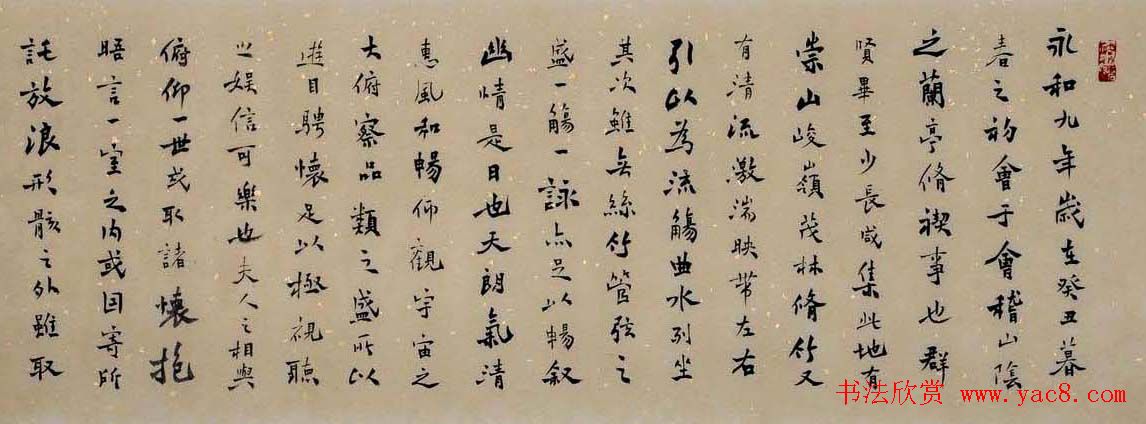 永和九年歲在癸丑暮
春之初會于會稽山陰
之蘭亭脩禊事也群
賢畢至少長咸集此地有
崇山峻嶺茂林脩竹又
有清流激湍映帶左右
引以為流觴曲水列坐
其次雖无絲竹管弦之
盛一觴一詠亦足以暢叙
幽情是日也天朗氣清
惠風和暢仰觀宇宙之
大俯察品類之盛所以
遊目騁懷足以極視聽
之娱信可樂也夫人之相與
俯仰一世或取諸懷抱
晤言一室之内或因寄所
託放浪形骸之外雖取
书法欣赏 www.yac8.com